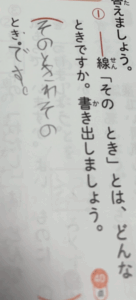 答えましょう。
① ――線「その とき」とは、どんな
ときですか。書き出しましょう。
そのときわその
とき･です。
40点